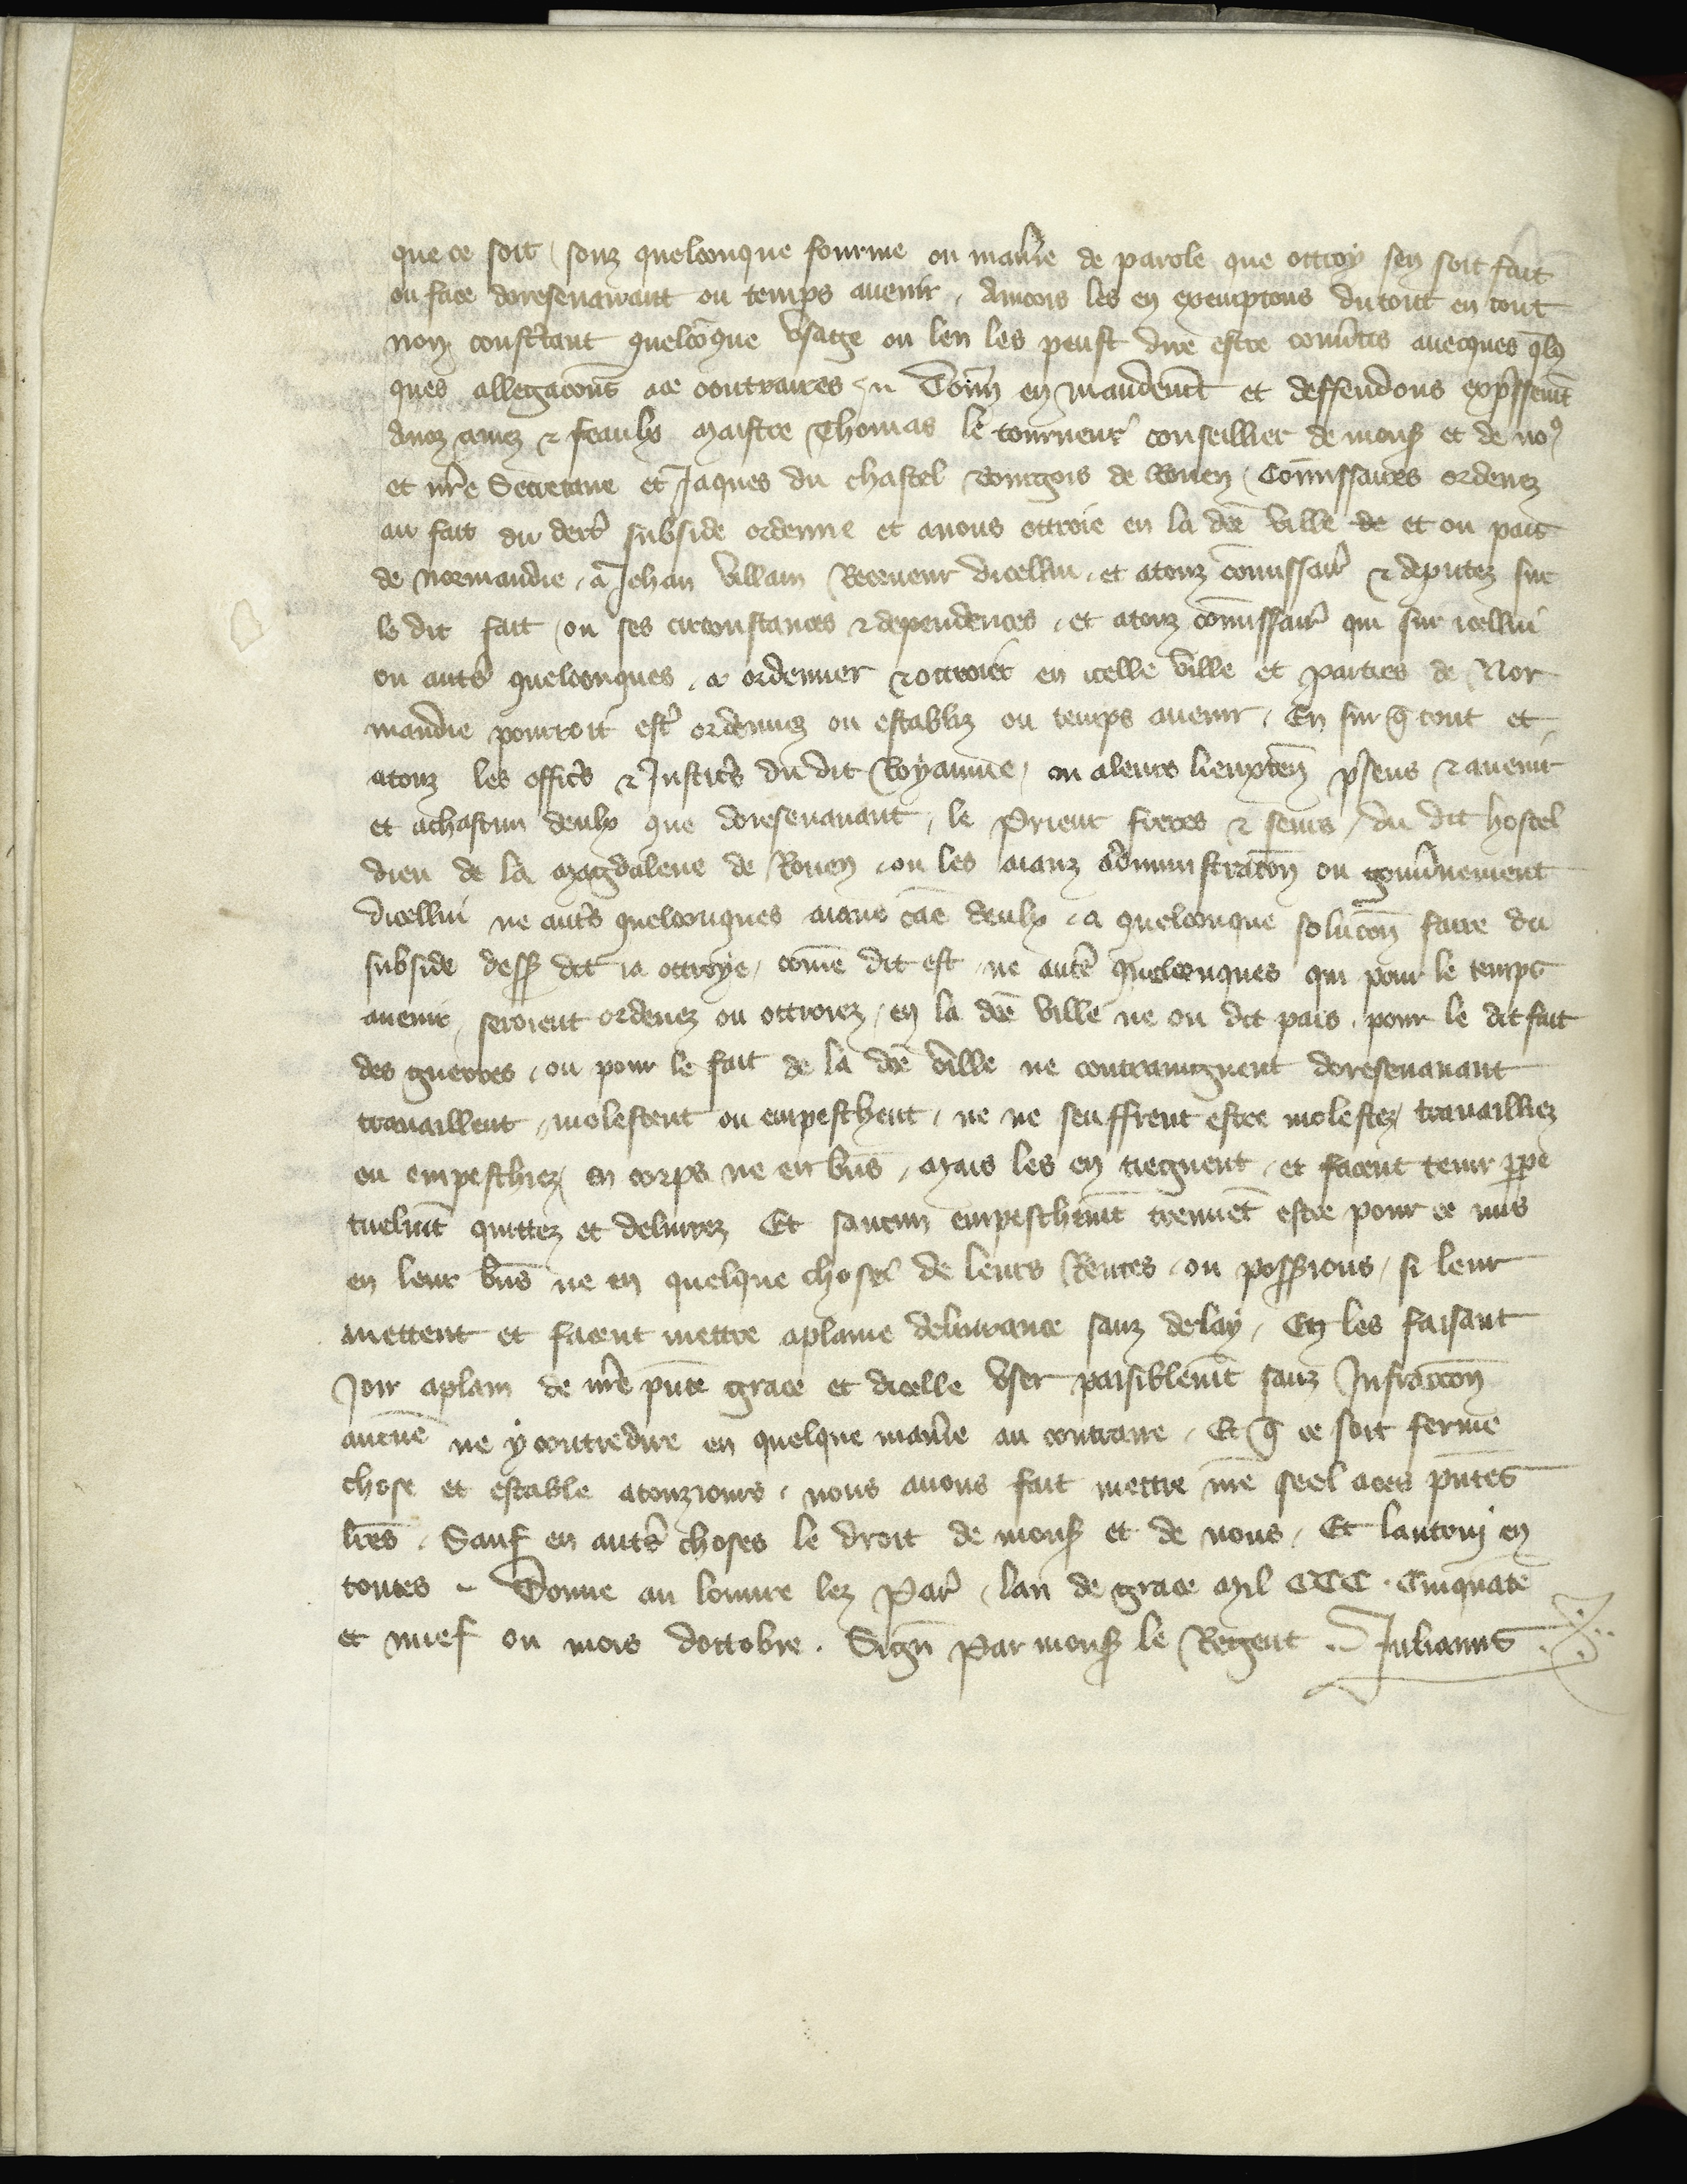 que ce soit / souz quelconque fourme ou manie͛ de parole que ottroy sen soit fait
ou face doresenauant ou temps auenir . Ancois les en exemptons du tout en tout
non constant quelcõque vsaige ou len les peust dire estre
ques allegacons a ce contraires en mandemt et deffendons expssemt
anoz amez ⁊ feaulx Maistre Thomas le tourneur conseillier de mons et de no9
et nre Secretaire et Jaques du chastel bourgois de Rouen / Commissaires ordenez
au fait du derr subside ordenne et anous ottroie en la dce ville de et ou pais
de normandie . a Jehan villain Receueur dicellui . et atouz comissair ⁊ deputez sur
le dit fait / ou ses circonstances ⁊ dependences . et atouz comissair qui sur icellui
ou autr quelconques . a ordenner ⁊ ottroier en icelle ville et parties de Nor
mandie pourroit estr ordennez ou establiz ou temps auenir . En sur q tout et
atouz les offic ⁊ Justic du dit Royaume / ou aleurs lieuxten psens ⁊ auenir
et achascun deulx que doresenauant / le Prieur freres ⁊ seurs / du dit hostel
dieu de la Magdalene de Rouen . ou les aianz administracon ou gouunement
dicellui ne autrs quelconques aians cae deulx . a quelconque solucon faire du
subside dess dit ia ottroye / come dit est . ne autr quelconques qui pour le temps
auenir / seroient ordenez ou ottroiez / en la dce ville ne ou dit pais . pour le dit fait
des guerres . ou pour le fait de la dce ville ne contraingnent doresenauant
trauaillent / molestent ou empeschent . ne ne seuffrent estre molestez / trauailliez
ou empeschiez / en corps ne en bns . Mais les en tiegnent . et facent tenir ppe
tuelmt quittez et deliurez Et saucun empeschemt treuuent estre pour ce mis
en leur bns ne en quelque chose de leurs Rentes . ou possions / si leur
mettent et facent mettre aplaine deliurance sanz delay / En les faisant
Joir aplain de nre pnte grace et dicelle vser paisiblemt sanz Infraccon
aucune ne y contredire en quelque manie͛ au contraire . Et q ce soit ferme
chose et estable atouziours . nous auons fait mettre nre seel aces pntes
lres . Sauf en autr choses le droit de mons et de nous . Et lautruj en
toutes ~ Donne au louure lez Par . lan de grace Mil CCC . Cinquate
et nuef ou mois dottobre . Sign Par mons le Regent . Julianus